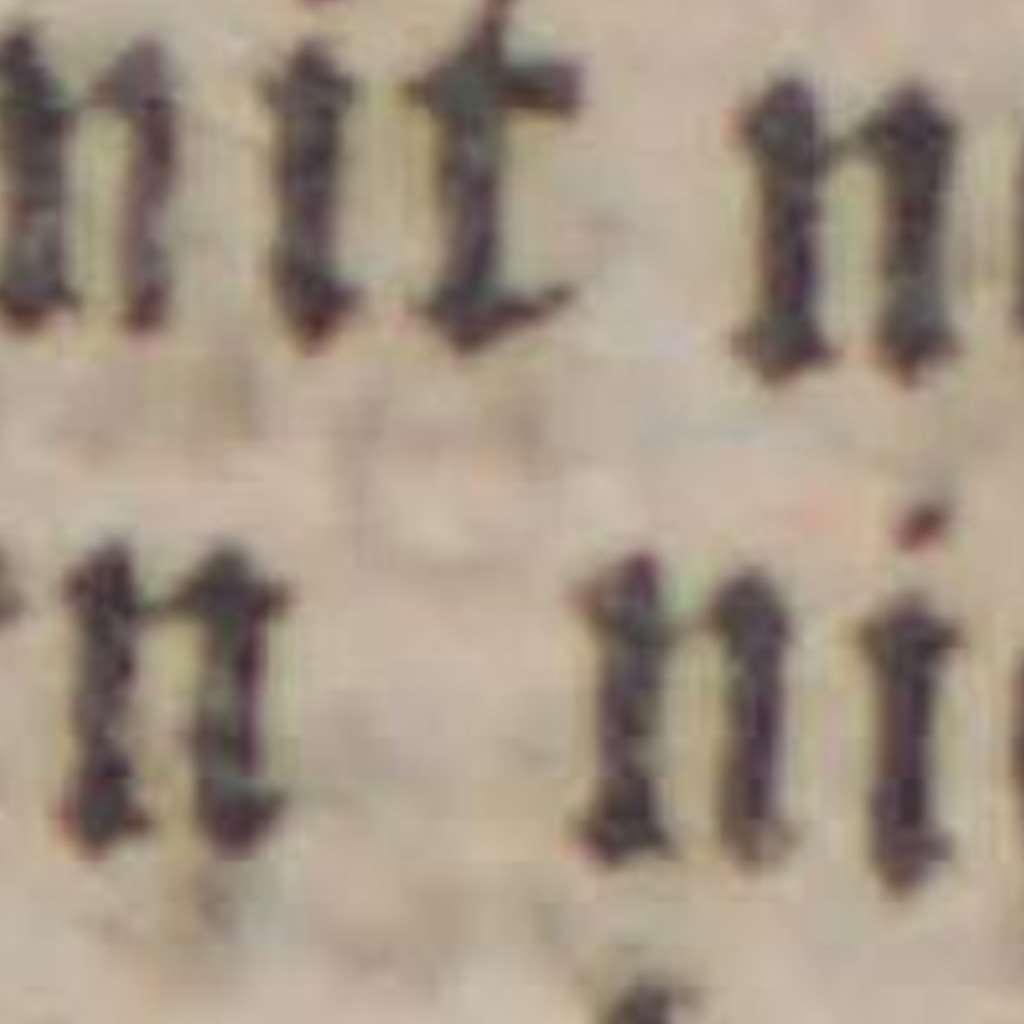 nit n
n ni